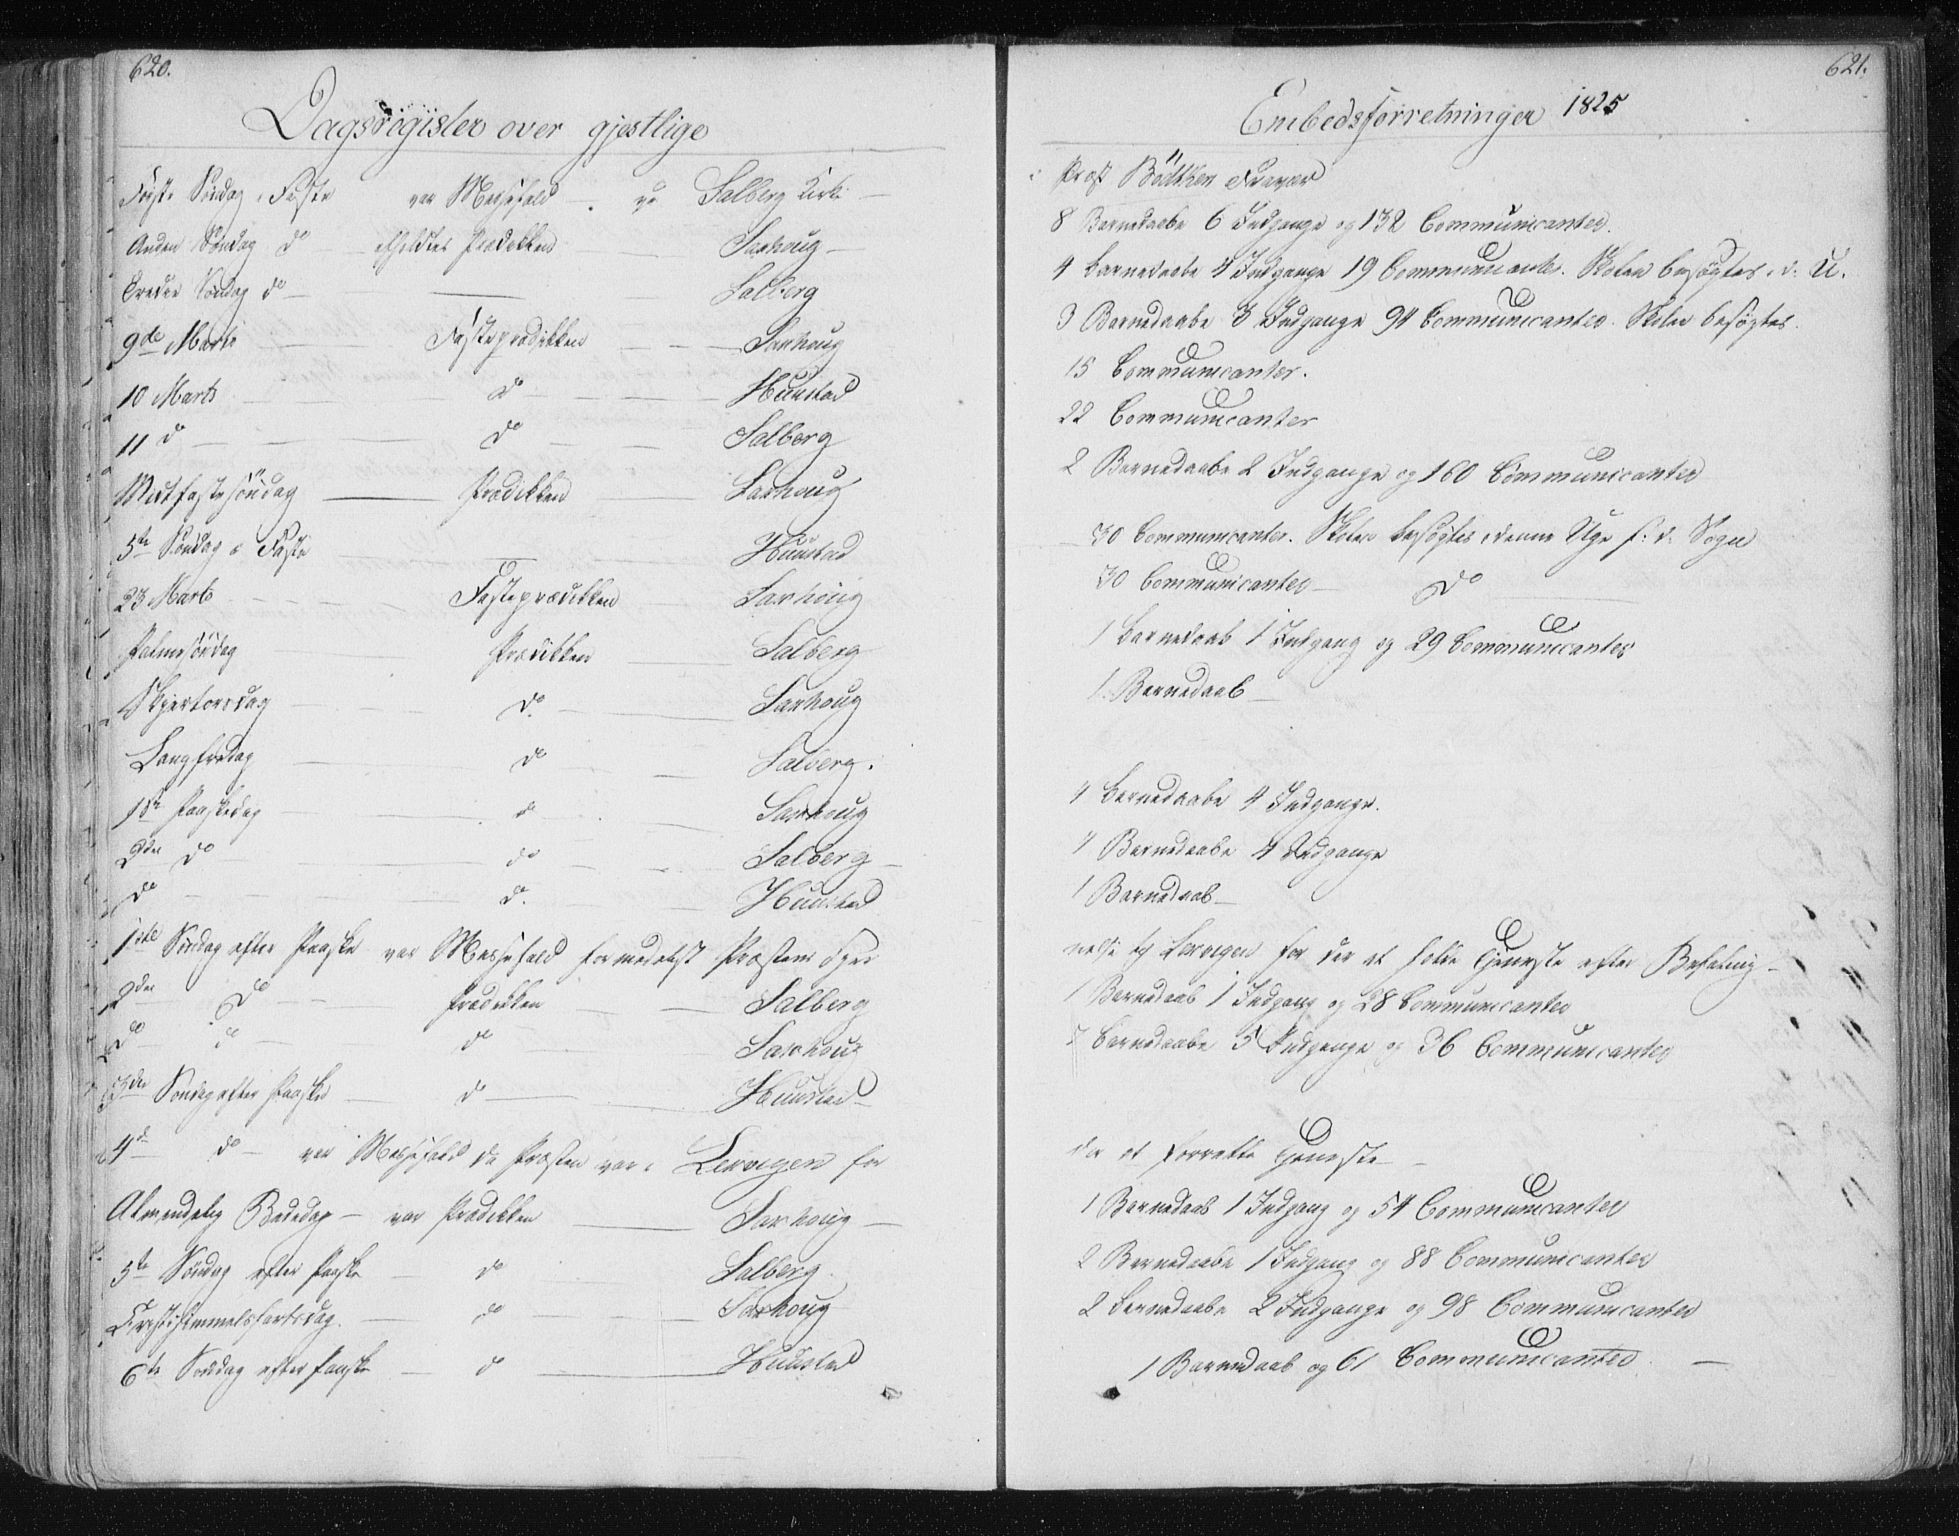 620.
Dagsregister over gjestlige
Første Søndag i Faste var Messefald — ved Salberg Kirke —
Anden Søndag do — afholdtes Prædikken — Saxhoug —
Tredie Søndag do — — Salberg
9de Marts — Fasteprædikken — Saxhoug
10 Marts — do — Huustad
11 do — do — Salberg
Midfastesöndag — Prædikken — Saxhoug
5te Søndag i Faste — — Huustad
23 Marts — Fasteprædikken — Saxhoug
Palmesöndag — Prædikken — Salberg
Skjertorsdag — do — Saxhoug
Langfredag — do — Salberg.
1ste Paaskedag — do — Saxhoug
2den do — do — Salberg —
do — do. — Huustad
1ste Søndag efter Paaske var Messefald formedelst Præstens
2den do — Prædikken — Salberg
do do — do — Saxhoug
3die Søndag efter Paaske — do — Huustad —
4de do — var Messefald da Præsten var i Lexvigen for
Almindelig Bededag — var Prædikken — Saxhoug —
5te Søndag efter Paaske — do — Salberg
Christihimmelfartsdag. — do — Saxhoug
6te Søndag efter Paaske — do — Huustad
621.
Embedsforretninger 1825
Prost
8 Barnedaabe 6 Indgange og 132 Communicanter.
4 Barnedaabe 4 Indgange 19 Communicanter. Skolen besøgtes i d: U.
3 Barnedaabe 3 Indgange 94 Communicanter. Skolen besøgtes.
15 Communicanter.
22 Communicanter
2 Barnedaabe 2 Indgange og 160 Communicanter
30 Communicanter. Skolen besøgtes i denne Uge f: d: Sogn
30 Communicanter — do —
1 Barnedaab 1 Indgang og 29 Communicanter
1. Barnedaab —
4 Barnedaabe 4 Indgange.
4 Barnedaabe 4 Indgange
1 Barnedaab —
Lexvigen for der at holde Tjeneste efter Befaling —
1 Barnedaab 1 Indgang og 28 Communicanter
Barnedaabe 5 Indgange og 36 Communicanter
der at forrette Tjeneste —
1 Barnedaab 1 Indgang og 54 Communicanter
2 Barnedaabe 1 Indgang og 88 Communicanter
2 Barnedaabe 2 Indgange og 98 Communicanter
1 Barnedaab og 61 Communicanter. —